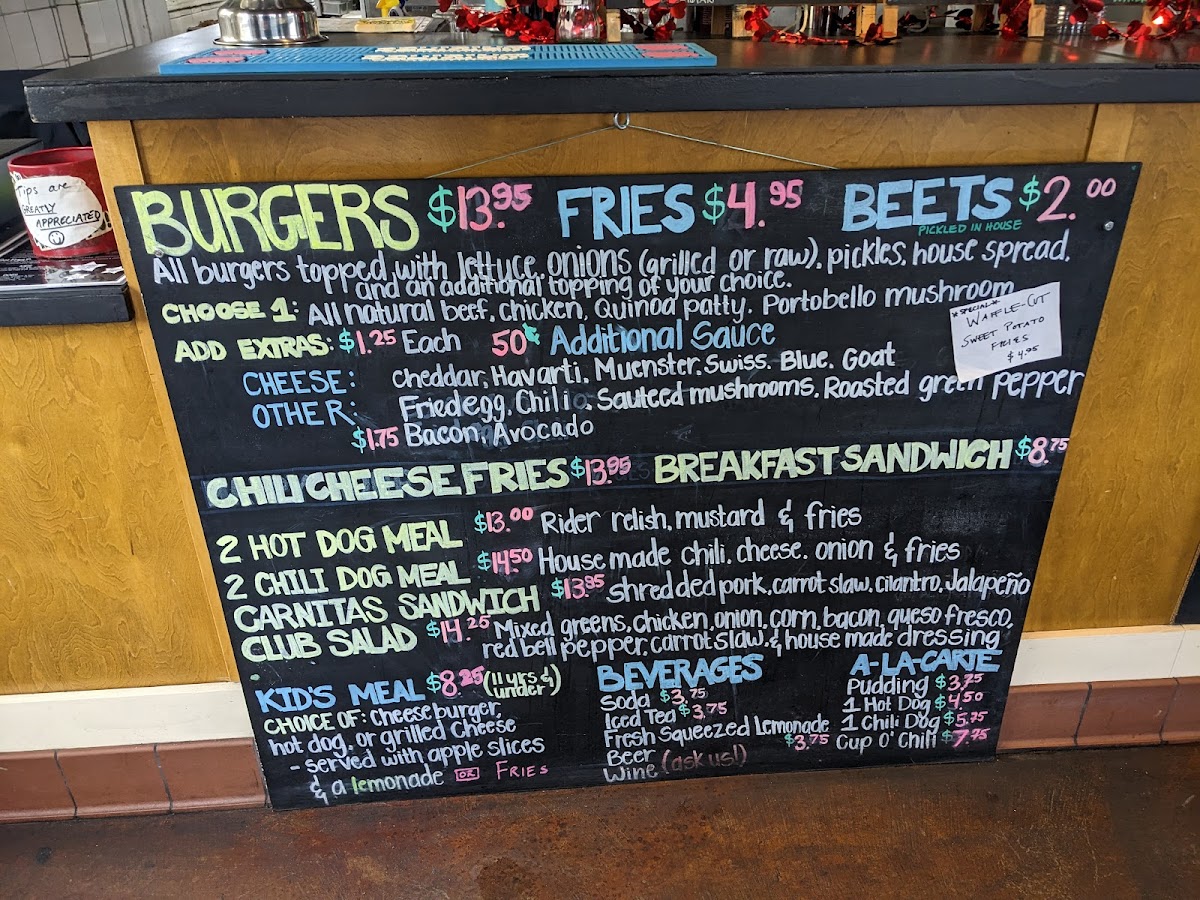 Tips are
GREATLY
APPRECIATED
BURGERS $13.95 FRIES $4.95 BEETS $2.00
PICKLED IN HOUSE
All burgers topped with lettuce, onions (grilled or raw), pickles, house spread,
and an additional topping of your choice.
CHOOSE 1: All natural beef, chicken, Quinoa patty, Portobello mushroom
*SPECIAL*
WAFFLE-CUT
SWEET POTATO
FRIES
$4.95
ADD EXTRAS: $1.25 Each 50¢ Additional Sauce
CHEESE: cheddar, Havarti, Muenster, Swiss, Blue, Goat
OTHER: Fried egg, Chili, Sauteed mushrooms, Roasted green pepper
$1.75 Bacon, Avocado
CHILI CHEESE FRIES $13.95 BREAKFAST SANDWICH $8.75
2 HOT DOG MEAL $13.00 Rider relish, mustard & fries
2 CHILI DOG MEAL $14.50 House made chili, cheese, onion & fries
CARNITAS SANDWICH $13.95 shredded pork, carrot slaw, cilantro, Jalapeño
CLUB SALAD $14.25 Mixed greens, chicken, onion, corn, bacon, queso fresco,
red bell pepper, carrot slaw, & house made dressing
KID'S MEAL $8.25 (11 yrs & under)
CHOICE OF: cheeseburger,
hot dog, or grilled cheese
- served with apple slices
& a lemonade OR FRIES
BEVERAGES
Soda $3.75
Iced Tea $3.75
Fresh Squeezed Lemonade
$3.75
Beer
Wine (ask us!)
A-LA-CARTE
Pudding $3.75
1 Hot Dog $4.50
1 Chili Dog $5.75
Cup O' Chili $7.75